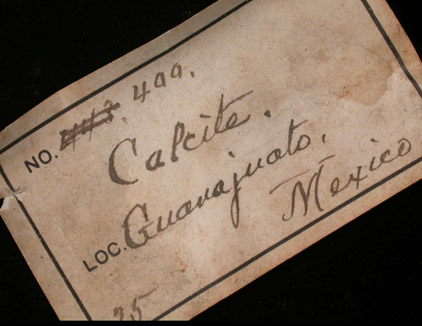 NO. 443. 400.
Calcite.
LOC. Guanajuato,
Mexico
25